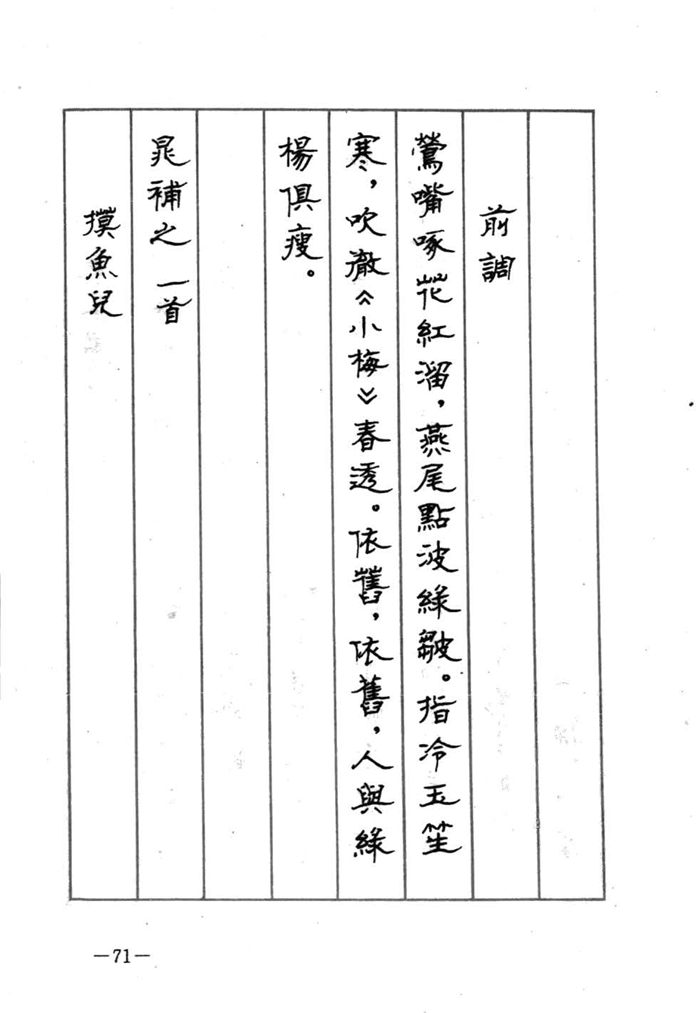 前調
鶯嘴啄花紅溜，燕尾點波綠皺。指冷玉笙
寒，吹澈《小梅》春透。依舊，依舊，人與綠
楊俱瘦。
晁補之 一首
摸魚兒
—71—